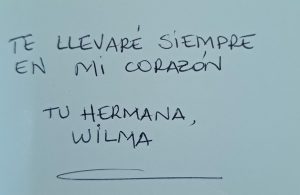 TE LLEVARÉ SIEMPRE
EN MI CORAZÓN
TU HERMANA,
WILMA